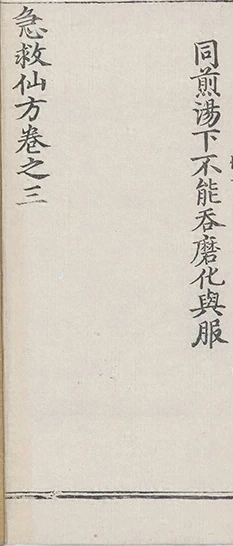 同煎湯下不能吞磨化與服
急救仙方卷之三